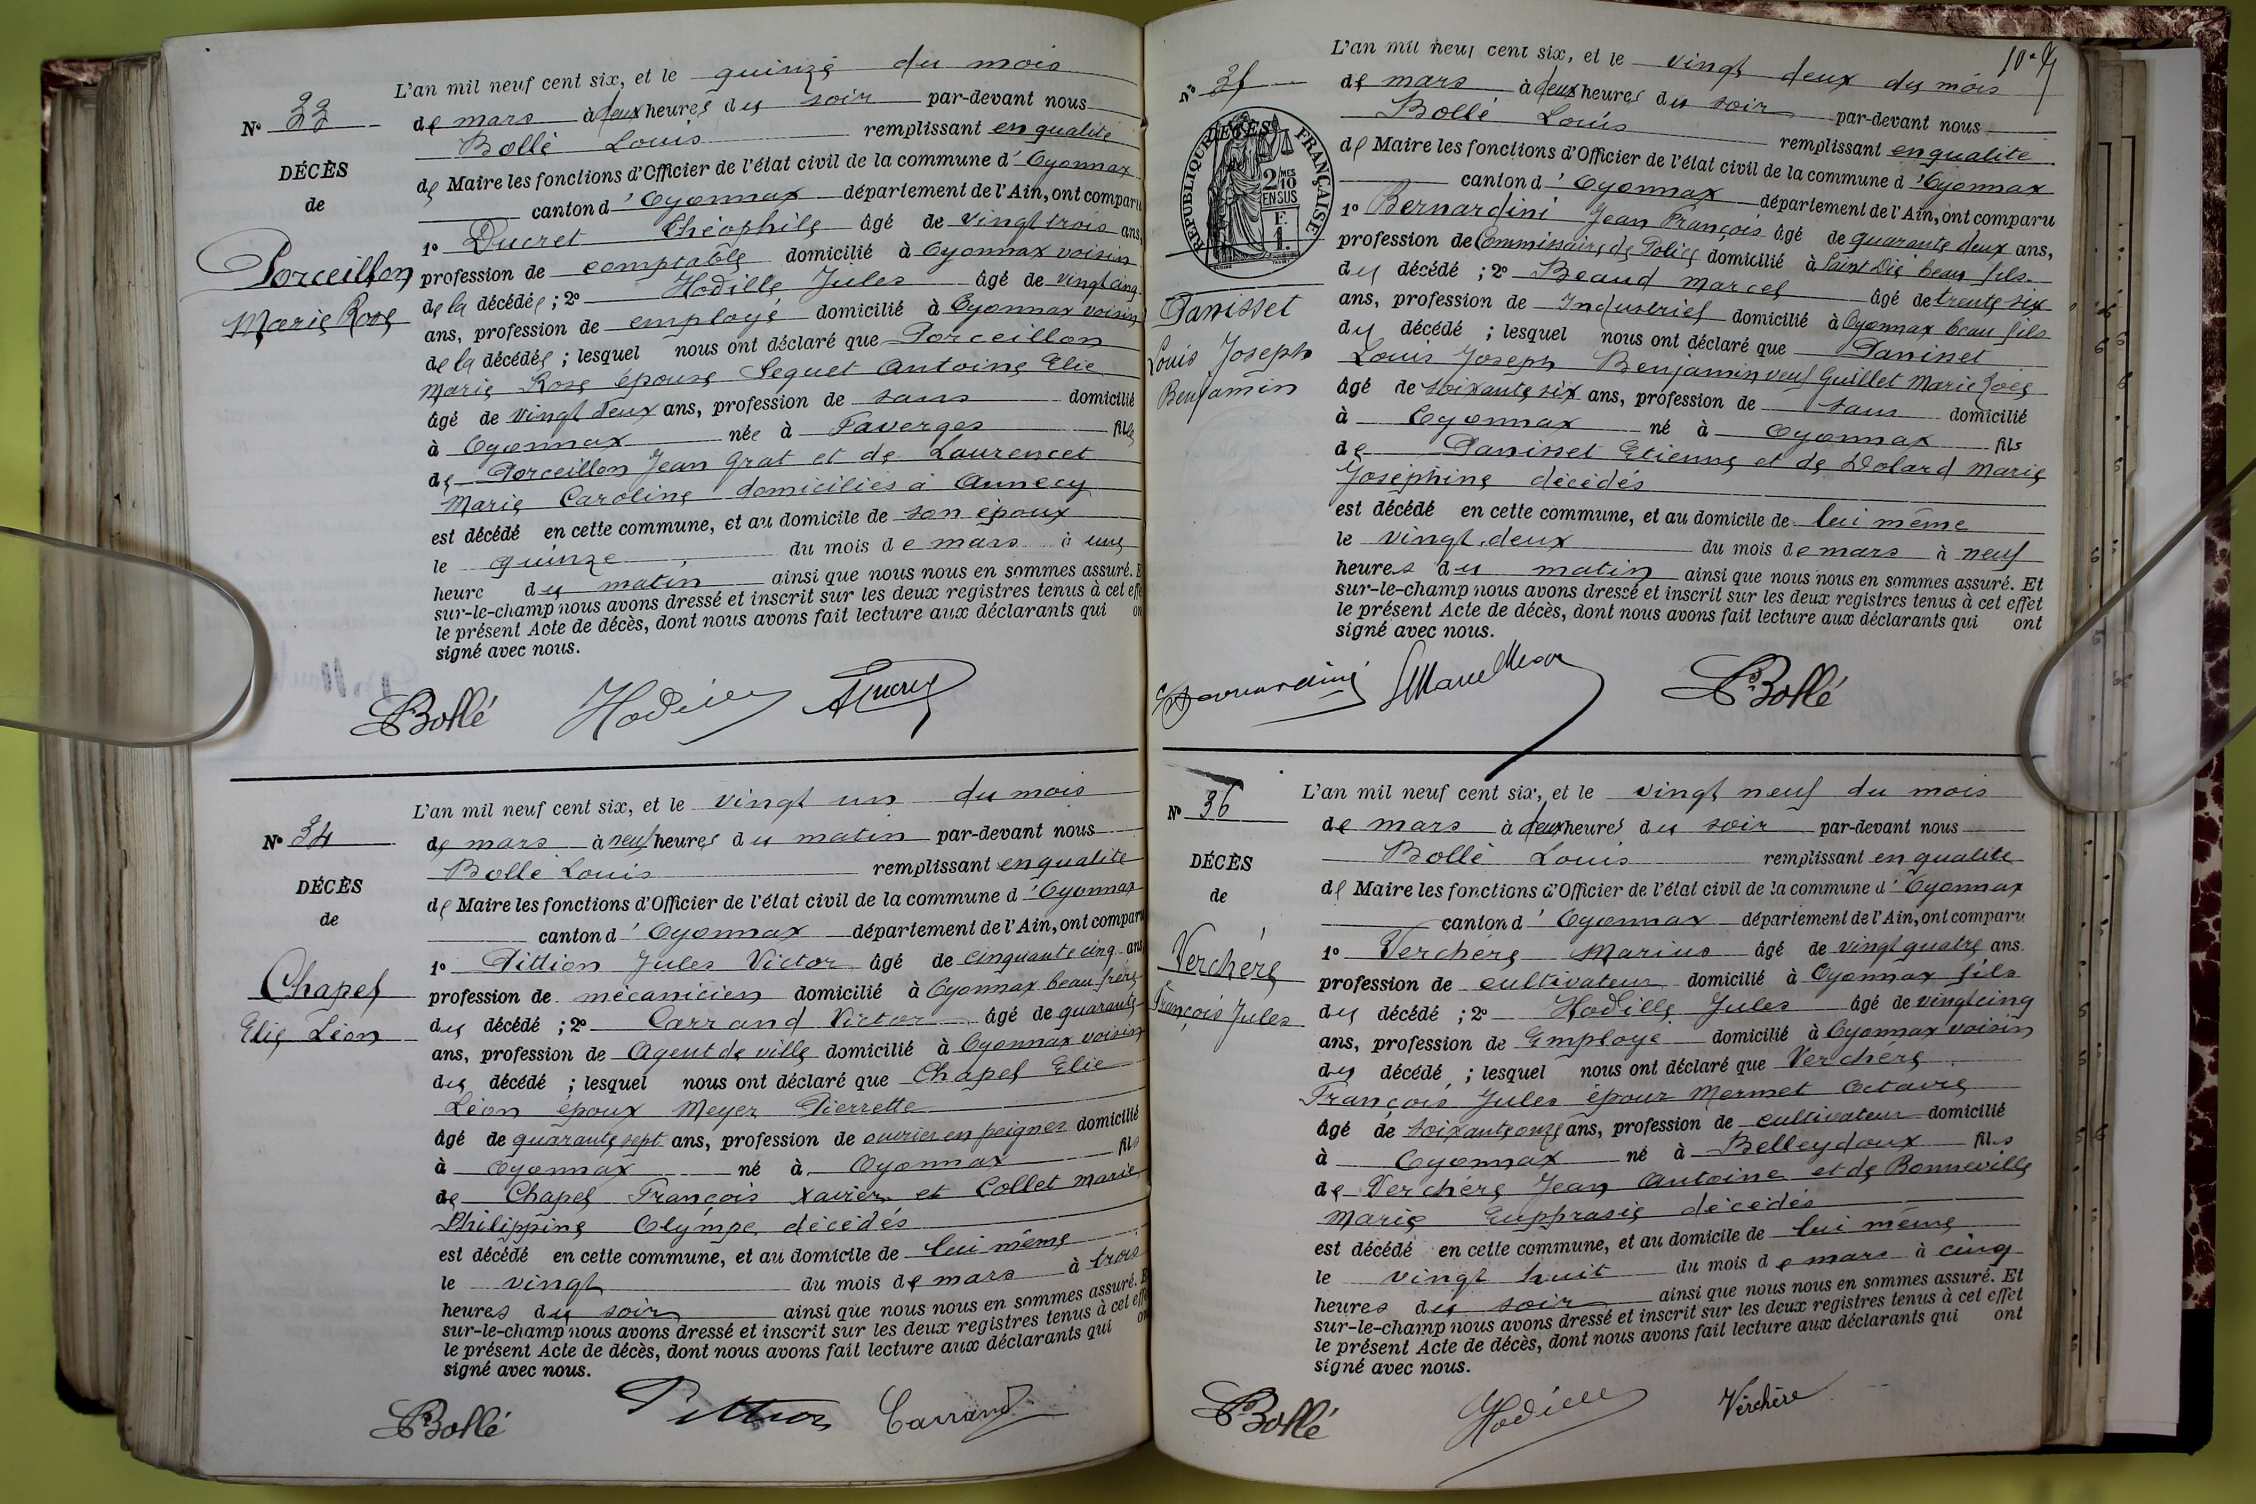 L'an mil neuf cent six, et le quinze du mois
No 33
de mars à deux heures du soir par-devant nous
Bollé Louis remplissant en qualité
DÉCÈS
de
de Maire les fonctions d'Officier de l'état civil de la commune d'Oyonnax
canton d'Oyonnax département de l'Ain, ont comparu
1o Ducret Théophile âgé de vingt trois ans,
Porceillon
Marie Rose
profession de comptable domicilié à Oyonnax voisin
de la décédée ; 2o Hodille Jules âgé de vingt cinq
ans, profession de employé domicilié à Oyonnax voisin
de la décédée ; lesquel nous ont déclaré que Porceillon
Marie Rose épouse Seguet Antoine Elie
âgé de vingt deux ans, profession de sans domicilié
à Oyonnax née à Faverges fille
de Porceillon Jean Grat et de Laurencet
Marie Caroline domiciliés à Annecy
est décédé en cette commune, et au domicile de son époux
le quinze du mois de mars à une
heure du matin ainsi que nous nous en sommes assuré. E
sur-le-champ nous avons dressé et inscrit sur les deux registres tenus à cet effe
le présent Acte de décès, dont nous avons fait lecture aux déclarants qui on
signé avec nous.
Bollé Hodille Ducret
L'an mil neuf cent six, et le vingt un du mois
No 34
de mars à neuf heures du matin par-devant nous
Bollé Louis remplissant en qualité
DÉCÈS
de
de Maire les fonctions d'Officier de l'état civil de la commune d'Oyonnax
canton d'Oyonnax département de l'Ain, ont comparu
1o Pittion Jules Victor âgé de cinquante cinq ans
Chapel
Elie Léon
profession de mécanicien domicilié à Oyonnax beau frère
du décédé ; 2o Carrand Victor âgé de quarante
ans, profession de Agent de ville domicilié à Oyonnax voisin
du décédé ; lesquel nous ont déclaré que Chapel Elie
Léon époux Meyer Pierrette
âgé de quarante sept ans, profession de ouvrier en peignes domicilié
à Oyonnax né à Oyonnax fils
de Chapel François Xavier et Collet Marie
Philippine Olympe décédés
est décédé en cette commune, et au domicile de lui même
le vingt du mois de mars à trois
heures du soir ainsi que nous nous en sommes assuré. E
sur-le-champ nous avons dressé et inscrit sur les deux registres tenus à cet effe
le présent Acte de décès, dont nous avons fait lecture aux déclarants qui on
signé avec nous.
Bollé Pittion Carrand
L'an mil neuf cent six, et le vingt deux du mois
No 35
de mars à deux heures du soir par-devant nous
Bollé Louis remplissant en qualité
DÉCÈS
RÉPUBLIQUE FRANÇAISE
2/10MES
EN SUS
F.
1.
de Maire les fonctions d'Officier de l'état civil de la commune d'Oyonnax
canton d'Oyonnax département de l'Ain, ont comparu
1o Bernardini Jean François âgé de quarante deux ans,
profession de Commissaire de Police domicilié à Saint Dié beau fils
du décédé ; 2o Beaud Marcel âgé de trente six
Panisset
Louis Joseph
Benjamin
ans, profession de Industriel domicilié à Oyonnax beau fils
du décédé ; lesquel nous ont déclaré que Panisset
Louis Joseph Benjamin veuf Guillet Marie Zoée
âgé de soixante six ans, profession de sans domicilié
à Oyonnax né à Oyonnax fils
de Panisset Etienne et de Dolard Marie
Joséphine décédés
est décédé en cette commune, et au domicile de lui même
le vingt deux du mois de mars à neuf
heures du matin ainsi que nous nous en sommes assuré. Et
sur-le-champ nous avons dressé et inscrit sur les deux registres tenus à cet effet
le présent Acte de décès, dont nous avons fait lecture aux déclarants qui ont
signé avec nous.
Bernardini Bollé
L'an mil neuf cent six, et le vingt neuf du mois
No 36
de mars à deux heures du soir par-devant nous
Bollé Louis remplissant en qualité
DÉCÈS
de
de Maire les fonctions d'Officier de l'état civil de la commune d'Oyonnax
canton d'Oyonnax département de l'Ain, ont comparu
1o Verchère Marius âgé de vingt quatre ans.
Verchère
François Jules
profession de cultivateur domicilié à Oyonnax fils
du décédé ; 2o Hodille Jules âgé de vingt cinq
ans, profession de Employé domicilié à Oyonnax voisin
du décédé ; lesquel nous ont déclaré que Verchère
François Jules époux Mermet Octavie
âgé de soixante onze ans, profession de cultivateur domicilié
à Oyonnax né à Belleydoux fils
de Verchère Jean Antoine et de Bonneville
Marie Eupphrasie décédés
est décédé en cette commune, et au domicile de lui même
le vingt huit du mois de mars à cinq
heures du soir ainsi que nous nous en sommes assuré. Et
sur-le-champ nous avons dressé et inscrit sur les deux registres tenus à cet effet
le présent Acte de décès, dont nous avons fait lecture aux déclarants qui ont
signé avec nous.
Bollé Hodille Verchère